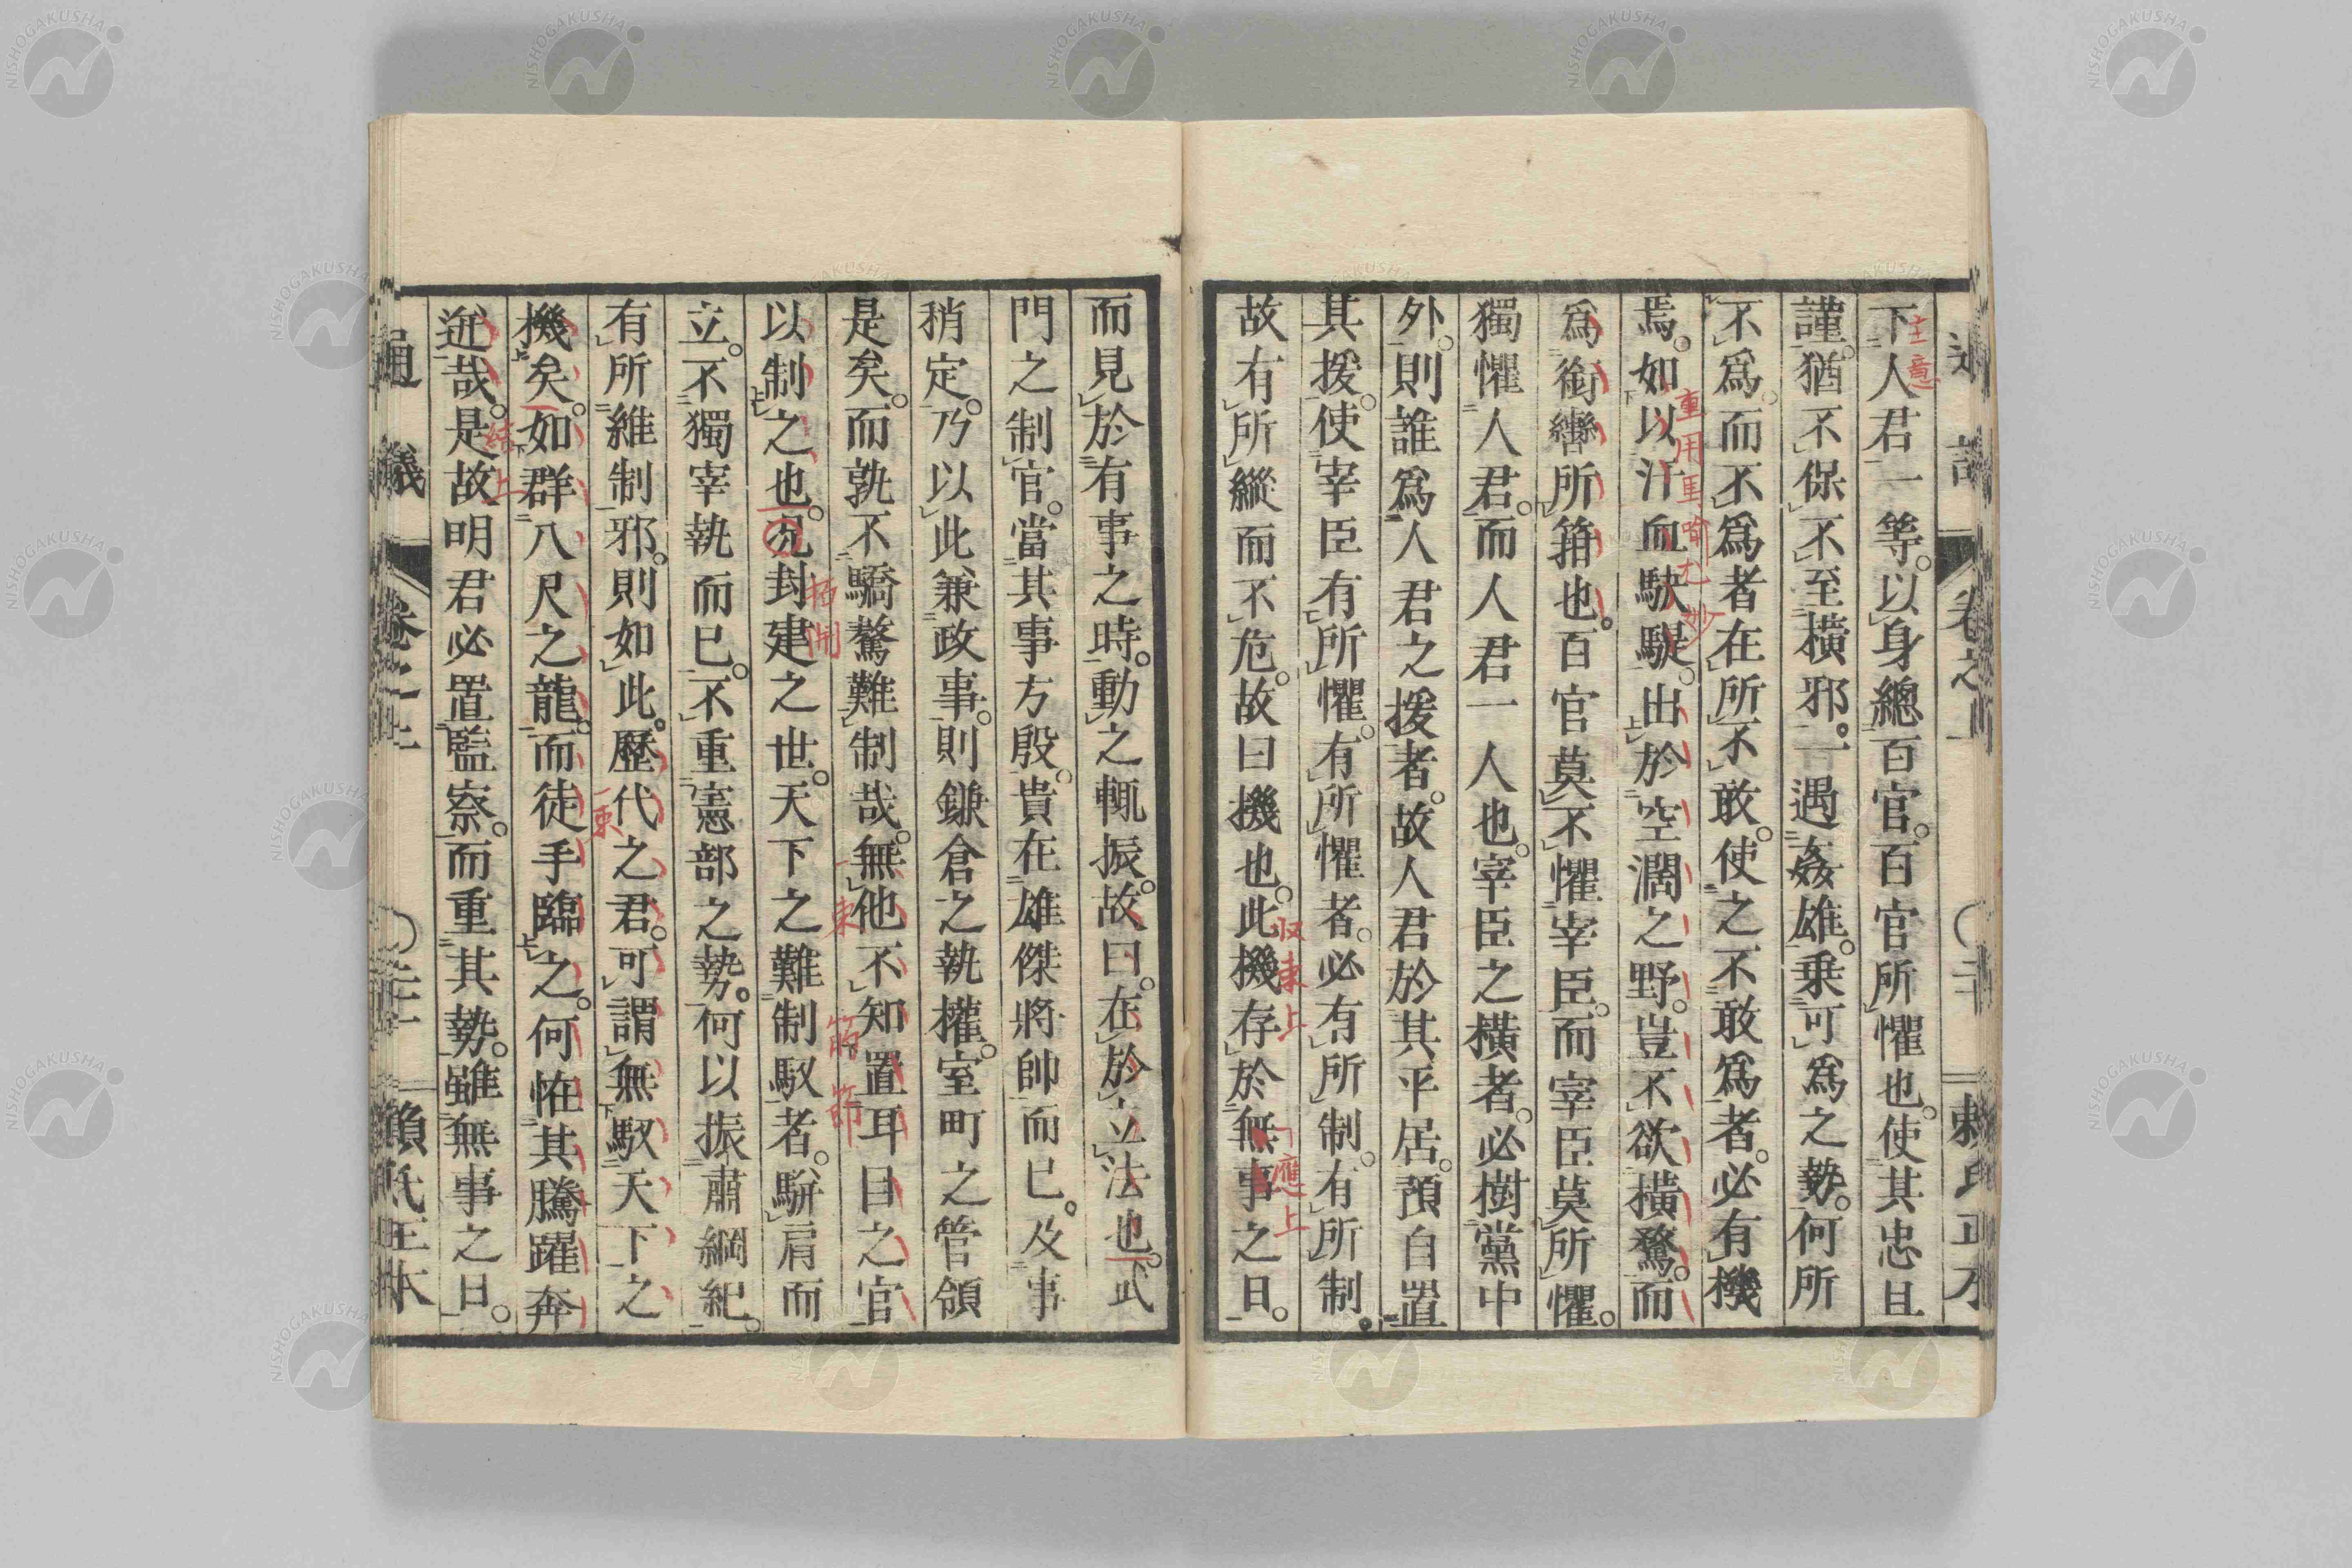 下人君一等。以身總百官。百官所懼也。使其忠且
主意
謹。猶不保不至橫邪。一遇姦雄。乗可爲之勢。何所
不爲。而不爲者在所不敢。使之不敢爲者。必有機
焉。如以汗血駃騠。出於空濶之野。豈不欲橫騖。而
重用重喻尤妙
爲銜轡所箝也。百官莫不懼宰臣。而宰臣莫所懼。
獨懼人君。而人君一人也。宰臣之橫者。必樹黨中
外。則誰爲人君之援者。故人君於其平居。預自置
其援。使宰臣有所懼。有所懼者。必有所制。有所制。
故有所縱而不危。故曰機也。此機存於無事之日。
収束上
應上
而見於有事之時。動之輒振。故曰。在於立法也。武
門之制官。當其事方殷。貴在雄傑將帥而已。及事
稍定。乃以此兼政事。則鎌倉之執權。室町之管領
是矣。而孰不驕驁難制哉。無他不知置耳目之官
一束
以制之也。况封建之世。天下之難制馭者。駢肩而
拓開
立。不獨宰執而已。不重憲部之勢。何以振肅綱紀。
有所維制邪。則如此。歷代之君。可謂無馭天下之
一束
機矣。如群八尺之龍。而徒手臨之。何恠其騰躍奔
逆哉。是故明君必置監察。而重其勢。雖無事之日。
結上
通議 卷之上 賴氏正本
NISHOGAKUSHA